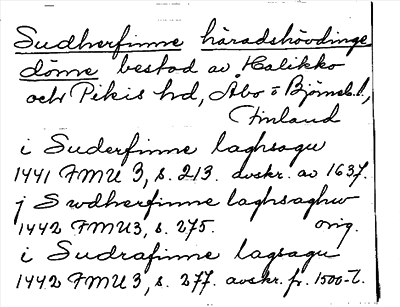 Sudherfinne häradshövdinge
döme bestod av Halikko
och Pikis hd, Åbo o Björneb. l,
Finland
i Suderfinne laghsagu
1441 FMU 3, s. 213. avskr. av 1637.
j Swdherfinne laghsaghw
1442 FMU3, s. 275. orig.
i Sudrafinne lagsagu
1442 FMU 3, s. 277. avskr. fr. 1500-t.